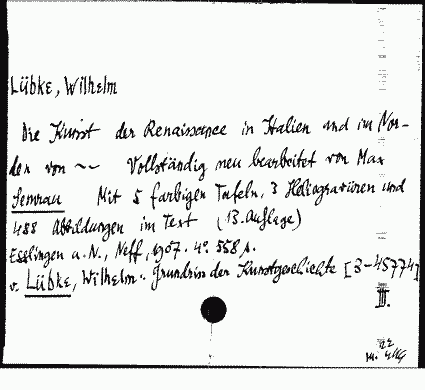 Lübke, Wilhelm
Die Kunst der Renaissance in Italien und im Nor-
den von ~~ Vollständig neu bearbeitet von Max
Semrau Mit 5 farbigen Tafeln, 3 Heliogravüren und
488 Abbildungen im Text (13. Auflage)
Esslingen a. N., Neff, 1907. 4° 558 p.
v. Lübke, Wilhelm: Grundriss der Kunstgeschichte [3-45774]
III.